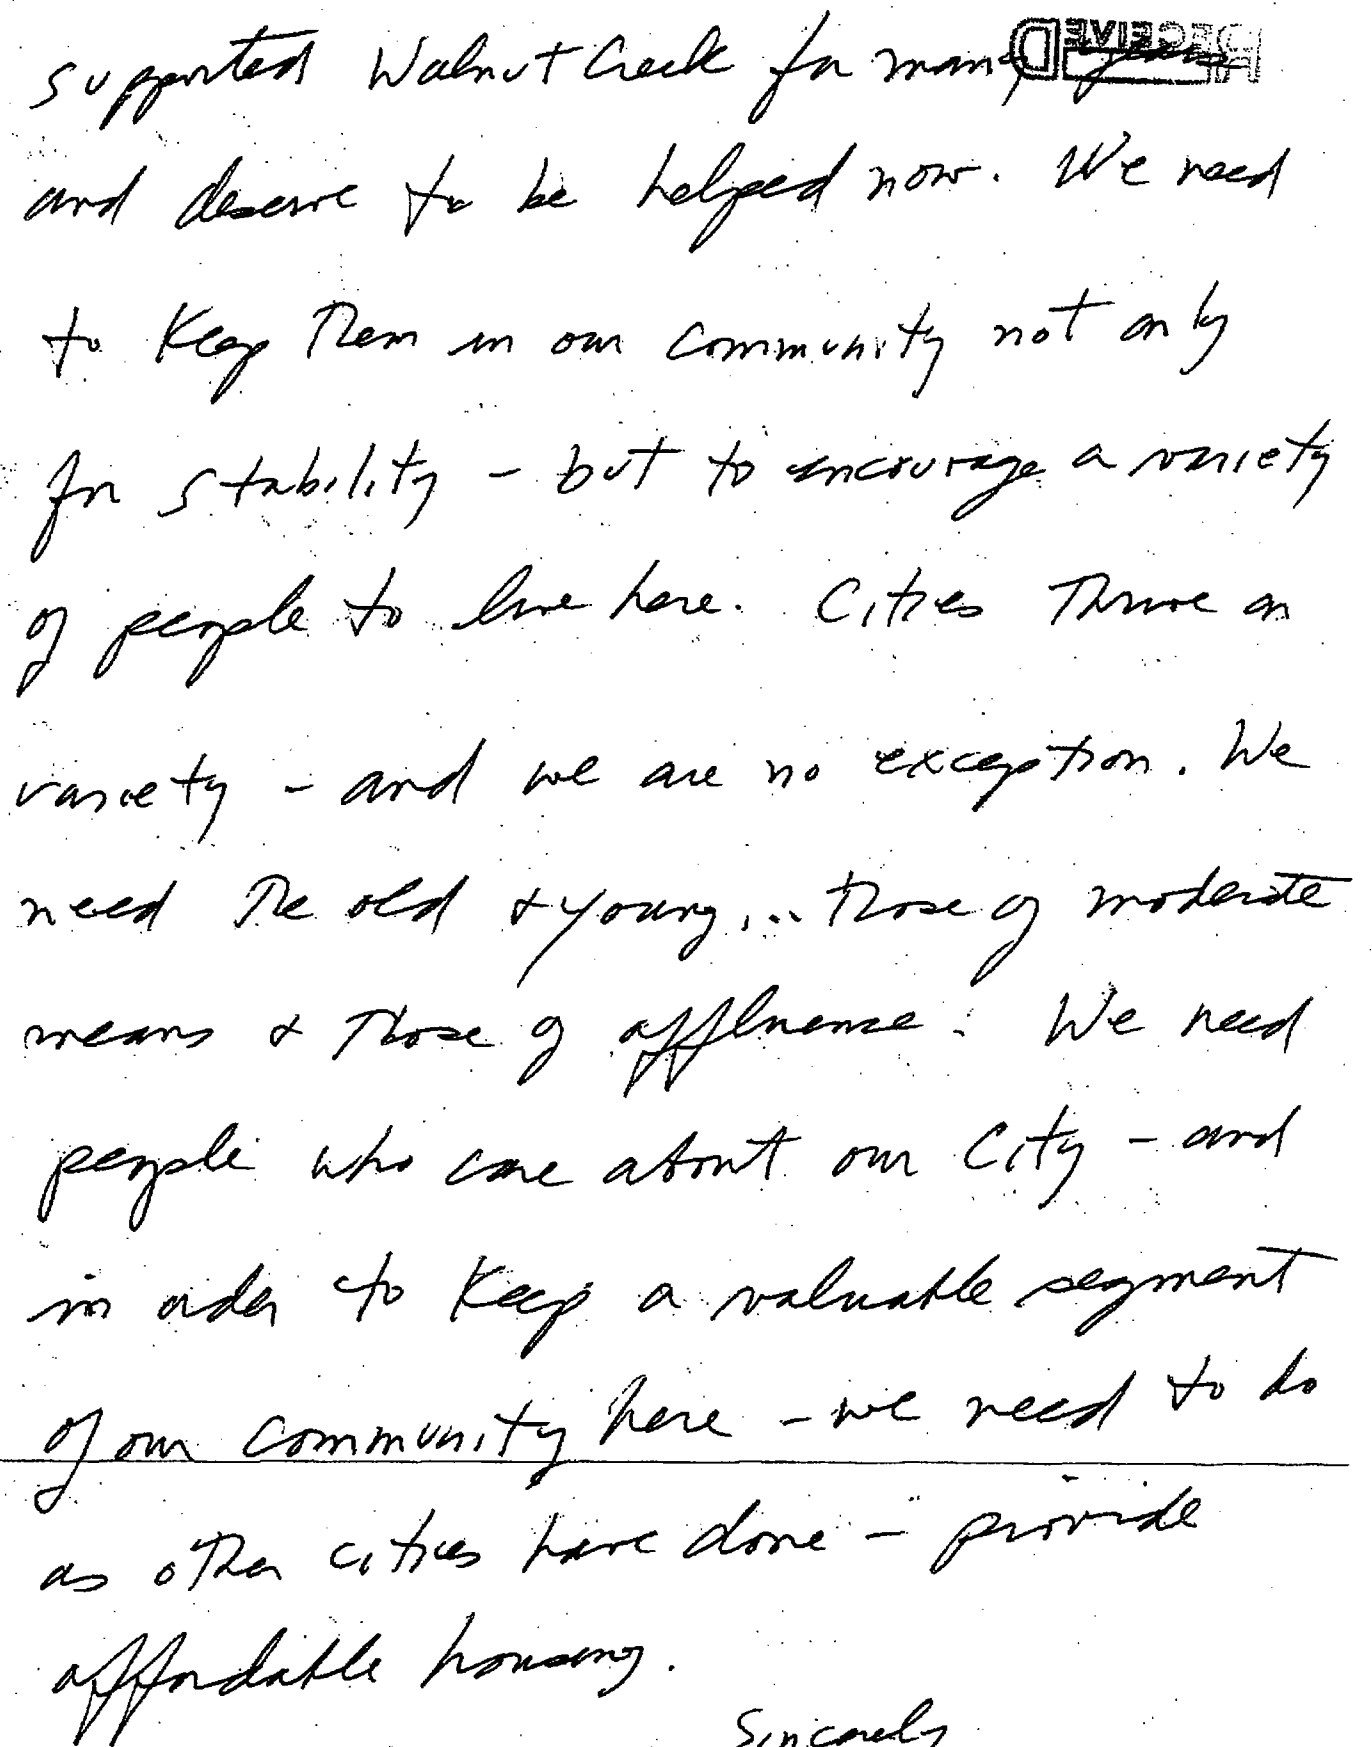 supported Walnut Creek for many years
RECEIVED
and deserve to be helped now. We need
to Keep Them in our community not only
for stability - but to encourage a variety
of people to live here. Cities Thrive on
variety - and we are no exception. We
need The old & young... Those of moderate
means & Those of affluence. We need
people who care about our City - and
in order to Keep a valuable segment
of our community here - we need to do
as oTher cities have done - provide
affordable housing.
Sincerely